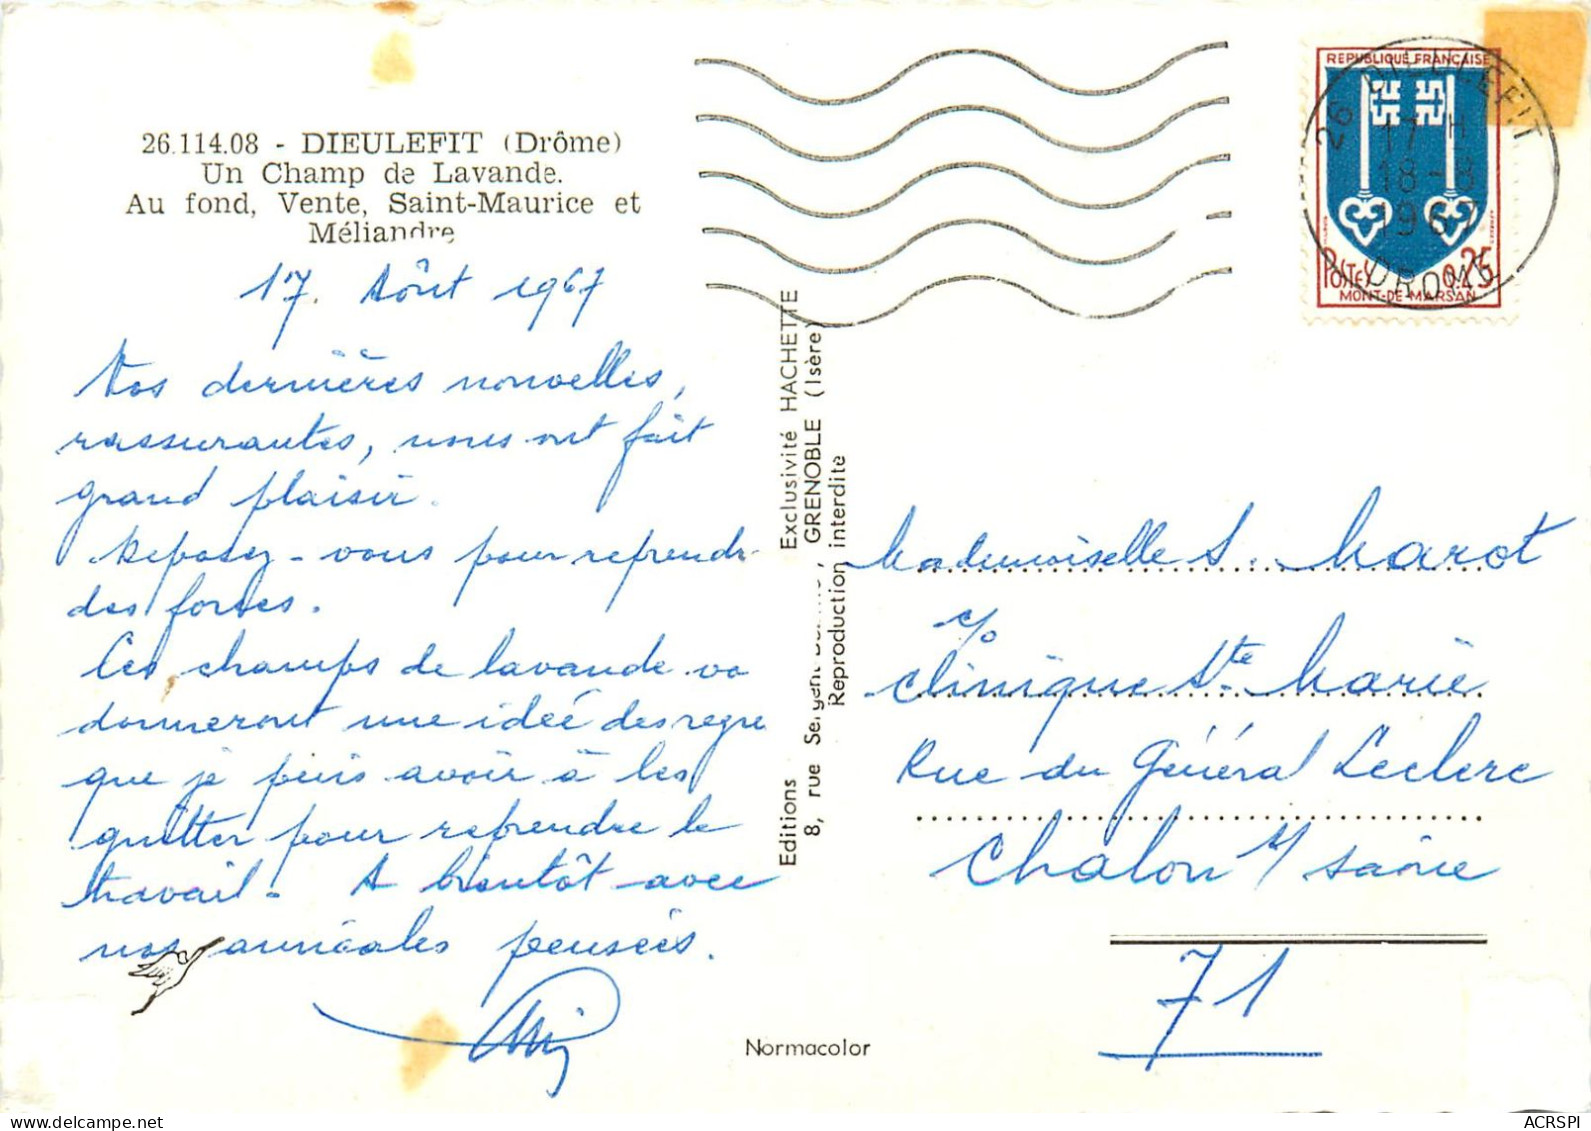 26.114.08 - DIEULEFIT (Drôme)
Un Champ de Lavande.
Au fond, Vente, Saint-Maurice et
Méliandre
17. Août 1967
Vos dernières nouvelles,
rassurantes, nous ont fait
grand plaisir.
Reposez-vous pour reprendr
des forces.
Ces champs de lavande vo
donneront une idée des regre
que je puis avoir à les
quitter pour reprendre le
travail. A bientôt avec
nos amicales pensées.
Editions
Exclusivité HACHETTE
8, rue Sergent GRENOBLE (Isère)
Reproduction interdite
Normacolor
REPUBLIQUE FRANÇAISE
POSTES 0.25
MONT-DE-MARSAN
26 DIEULEFIT
17 H
18-8
1967
DROME
Mademoiselle S. Marot
c/o
Clinique Ste Marie
Rue du Général Leclerc
Chalon s/ Saône
71
ACRSPI